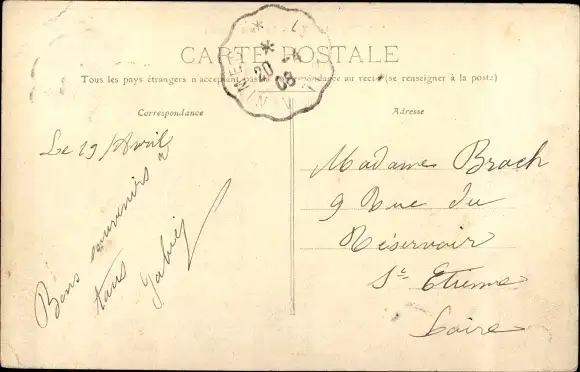 CARTE POSTALE
Tous les pays étrangers n'acceptent pas la correspondance au recto (se renseigner à la poste)
20 -4
08
Correspondance
Adresse
Le 19 Avril
Bons souvenirs à
tous
Madame Brach
9 Rue du
Réservoir
St Etienne
Loire